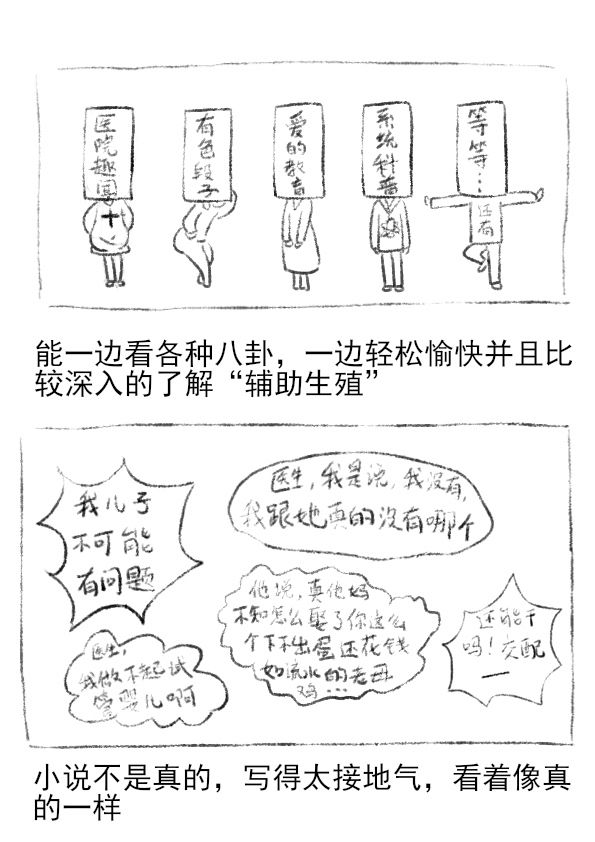 医院趣闻
有色段子
爱的教育
系统科普
等等…
还有
能一边看各种八卦，一边轻松愉快并且比
较深入的了解“辅助生殖”
我儿子
不可能
有问题
医生，我是说，我没有，
我跟她真的没有哪个
他说，真他妈
不知怎么娶了你这么
个下不出蛋还花钱
如流水的老母
鸡…
医生，
我做不起试
管婴儿啊
还能干
吗！交配
一
小说不是真的，写得太接地气，看着像真
的一样